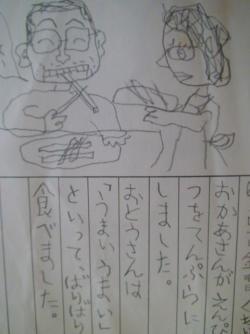 おかあさんがえんぴ
つをてんぷらに
しました。
おとうさんは
「うまいうまい」
といって、ばりばり
食べました。